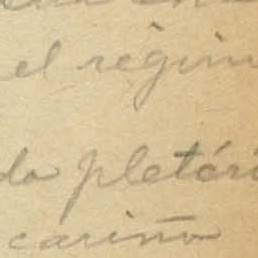 el régim
do pletóri
cariño